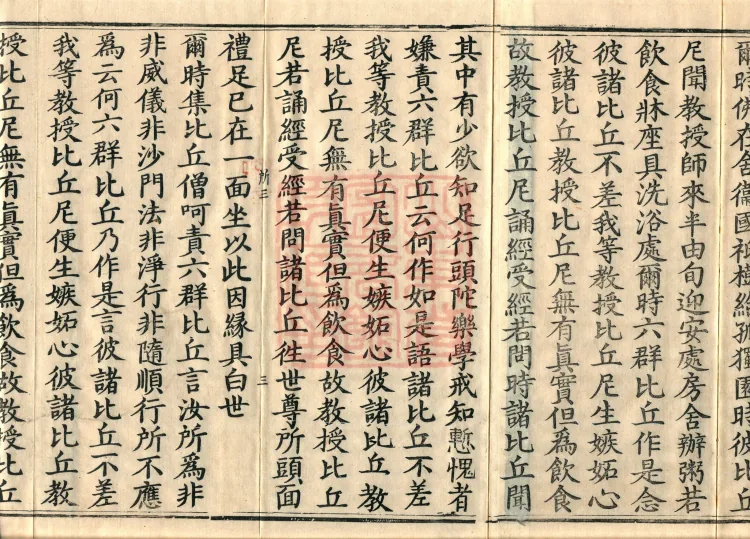 爾時佛在舍衞國祇樹給孤獨園時彼比丘
尼聞教授師來半由旬迎安處房舍辦粥若
飲食牀座具洗浴處爾時六群比丘作是念
彼諸比丘不差我等教授比丘尼生嫉妬心
彼諸比丘教授比丘尼無有眞實但爲飲食
故教授比丘尼誦經受經若問時諸比丘聞
其中有少欲知足行頭陀樂學戒知慙愧者
嫌責六群比丘云何作如是語諸比丘不差
我等教授比丘尼便生嫉妬心彼諸比丘教
授比丘尼無有眞實但爲飲食故教授比丘
尼若誦經受經若問諸比丘徃世尊所頭面
三
禮足已在一面坐以此因縁具白世
爾時集比丘僧呵責六群比丘言汝所爲非
非威儀非沙門法非淨行非隨順行所不應
爲云何六群比丘乃作是言彼諸比丘不差
我等教授比丘尼便生嫉妬心彼諸比丘教
授比丘尼無有眞實但爲飲食故教授比丘